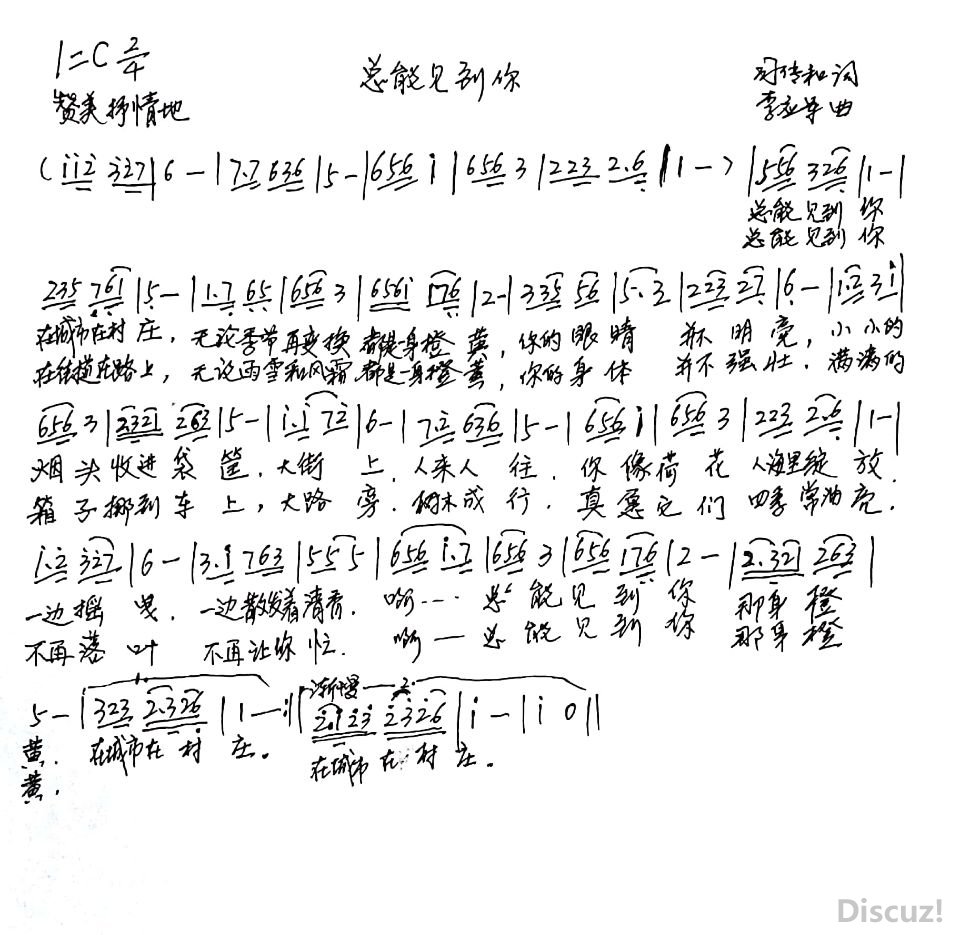 1=C 2/4
总能见到你
赞美 抒情地
司传和词
李应军曲
( i i 2 3 2 7 | 6 - | 7.7 6 3 6 | 5 - | 6 5 6 i | 6 5 6 3 | 2 2 3 2.6 | 1 - ) | 5 5 6 3 2 6 | 1 - |
总能见到 你
总能见到 你
2 3 5 7 6 1 | 5 - | 1.7 6 5 | 6 5 6 3 | 6 5 6 i 1 7 6 | 2 - | 3 3 5 5 6 | 5.3 | 2 2 3 2 7 | 6 - | 1.2 3 i |
在城市在村 庄，无论季节再变换 都是一身橙 黄，你的眼睛 并不 明 亮，小小的
在街道在路上，无论雨雪和风霜 都是一身橙 黄，你的身体 并不 强 壮．满满的
6 5 6 3 | 2 3 2 1 2 6 3 | 5 - | i.i 7 2 | 6 - | 7 2 6 3 6 | 5 - | 6 5 6 i | 6 5 6 3 | 2 2 3 2.6 | 1 - |
烟 头 收进 袋 筐．大街 上．人来人 往．你像荷 花 人海里绽 放．
箱 子 挪到 车 上，大路 旁．树木成 行．真愿它 们 四季常油亮．
i.2 3 2 7 | 6 - | 3.i 7 6 3 | 5 5 5 | 6 5 6 i.7 | 6 5 6 3 | 6 5 6 1 7 6 | 2 - | 2.3 2 1 2 6 3 |
一边摇 曳．一边散发着清香．啊---- 总 能 见 到 你 那身 橙
不再落 叶 不再让你 忙．啊— 总 能 见 到 你 那身 橙
5 - | 3 2 3 2.3 2 6 | 1 - :|| 渐慢 2. 2.1 2 3 2 3 2 6 | i - | i 0 ||
黄．在城市在 村 庄。 在城市 在 村 庄。
黄．
Discuz!